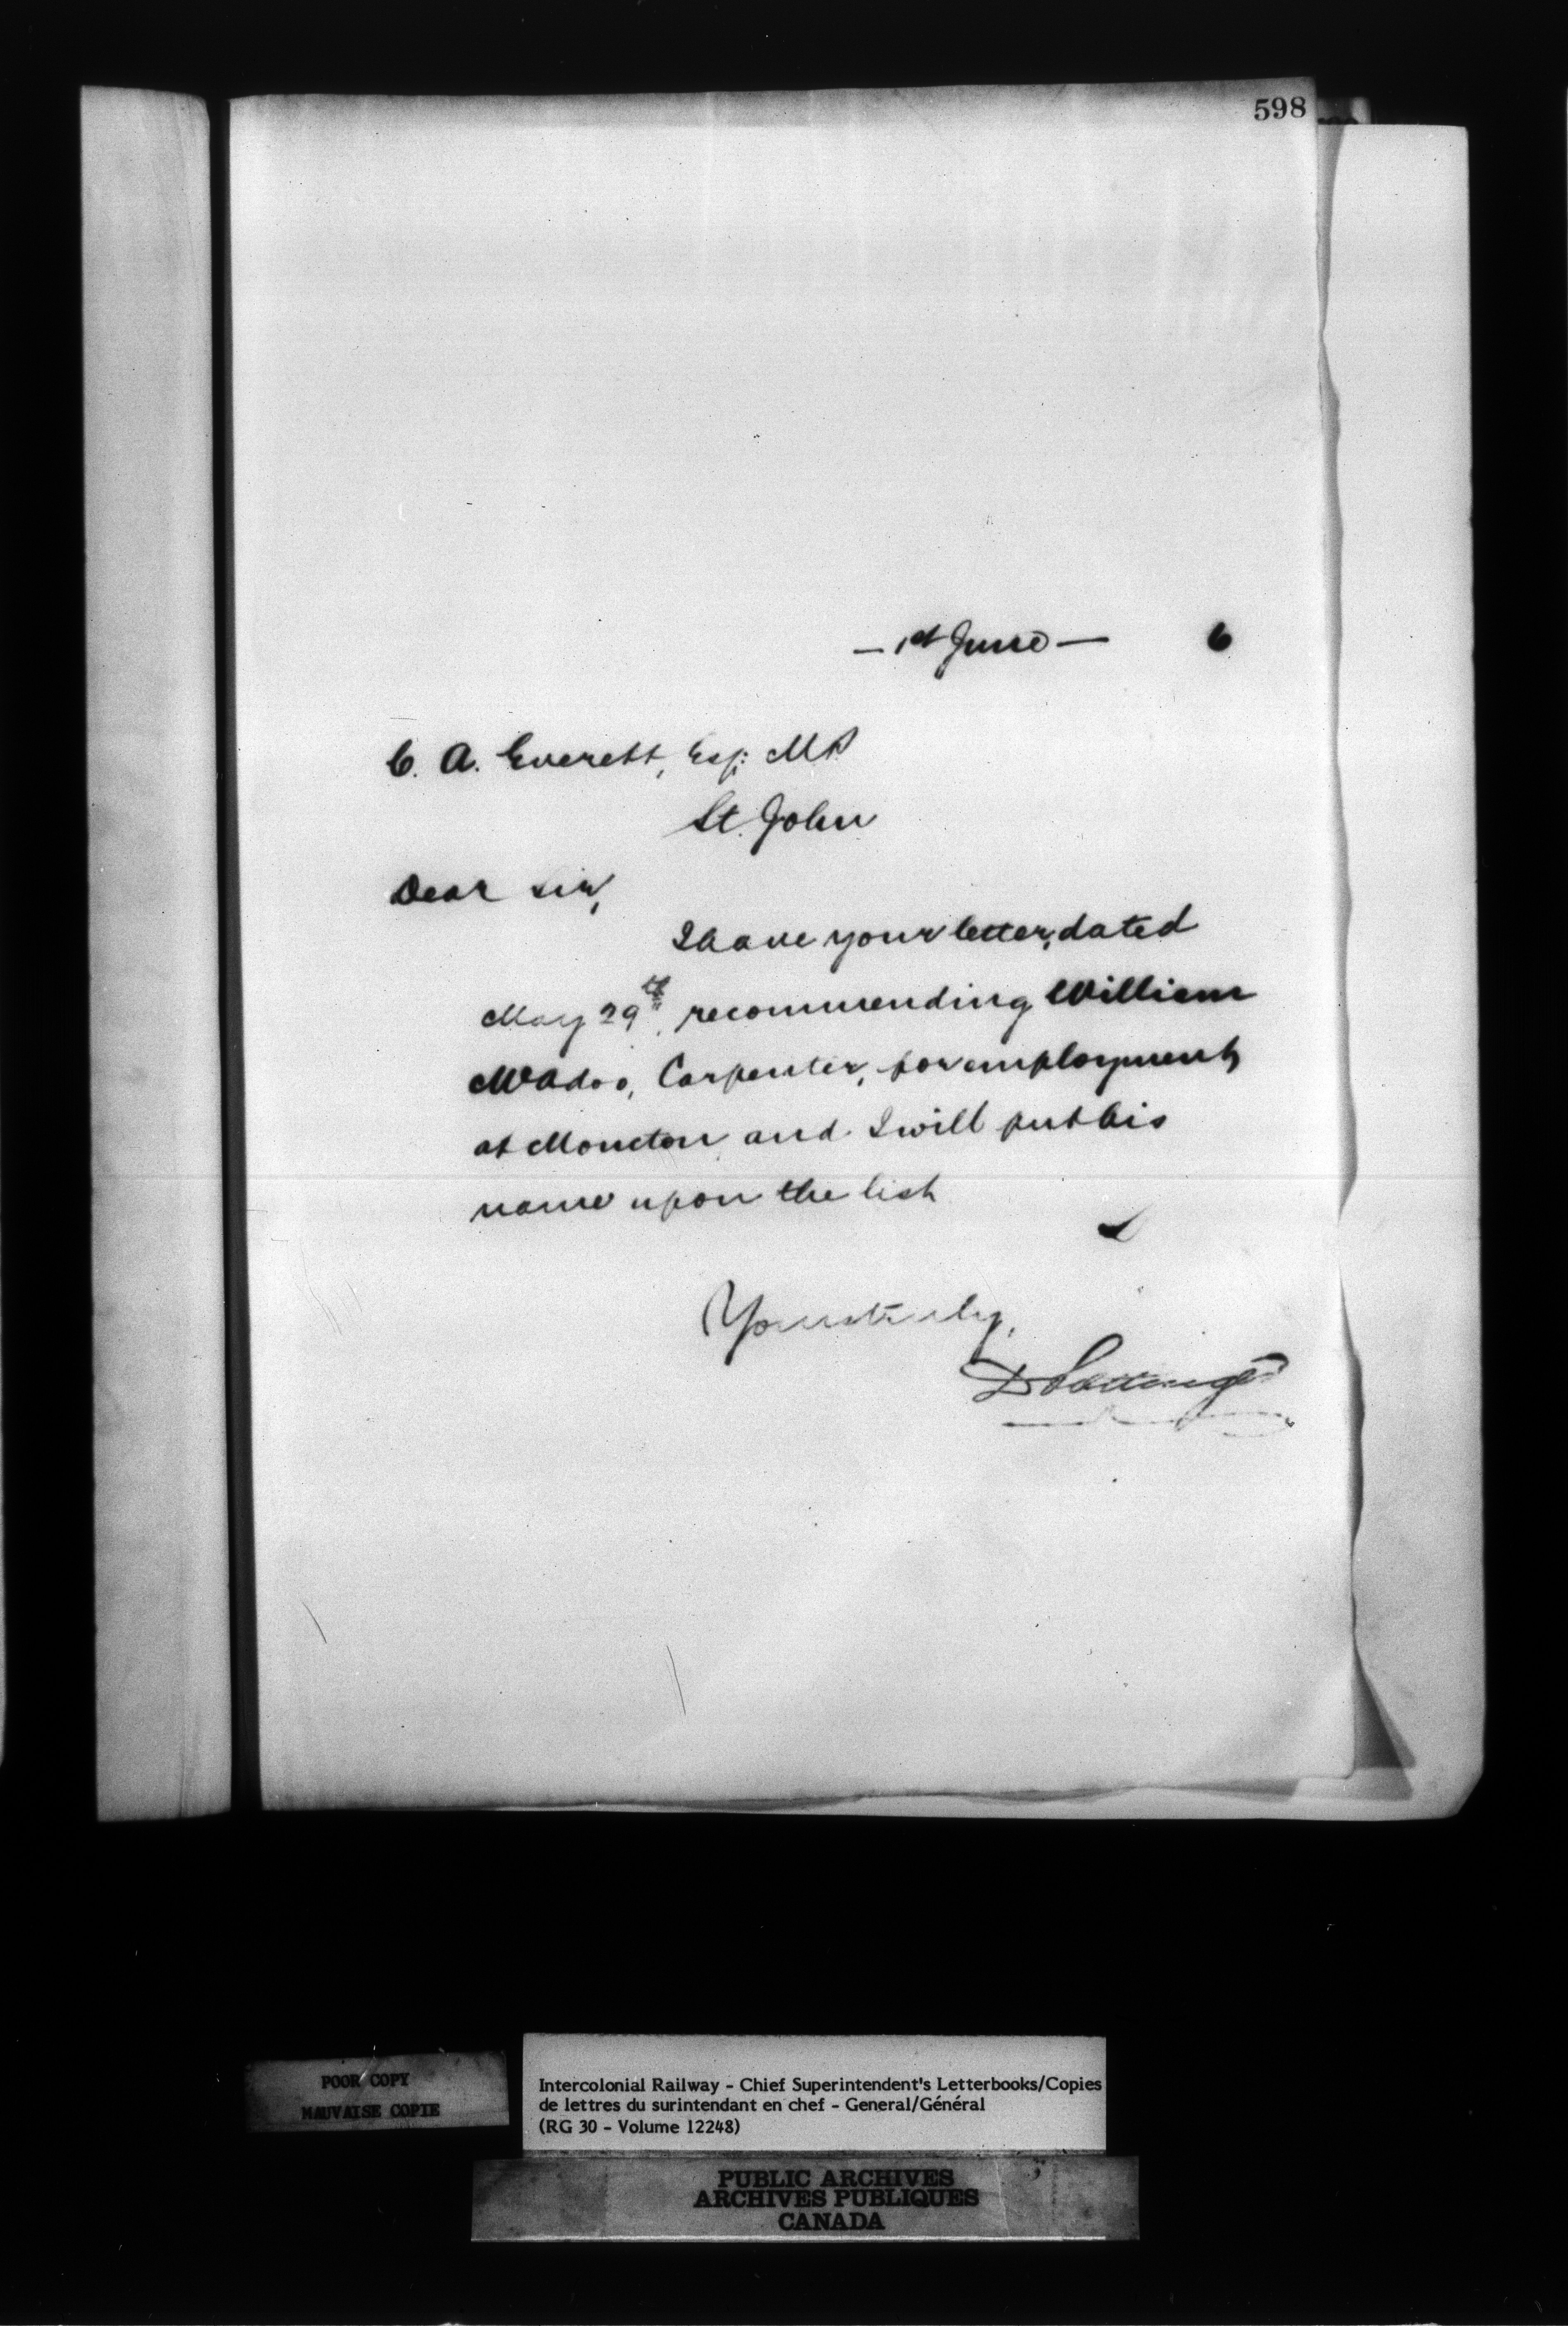 598
— 1st June — 6
C. A. Everett, Esq: MP
St. John
Dear Sir,
I have your letter, dated
May 29th, recommending William
McAdoo, Carpenter, for employment
at Moncton and I will put his
name upon the list
Yours truly,
D Pottinger
POOR COPY
MAUVAISE COPIE
Intercolonial Railway - Chief Superintendent's Letterbooks/Copies
de lettres du surintendant en chef - General/Général
(RG 30 - Volume 12248)
PUBLIC ARCHIVES
ARCHIVES PUBLIQUES
CANADA